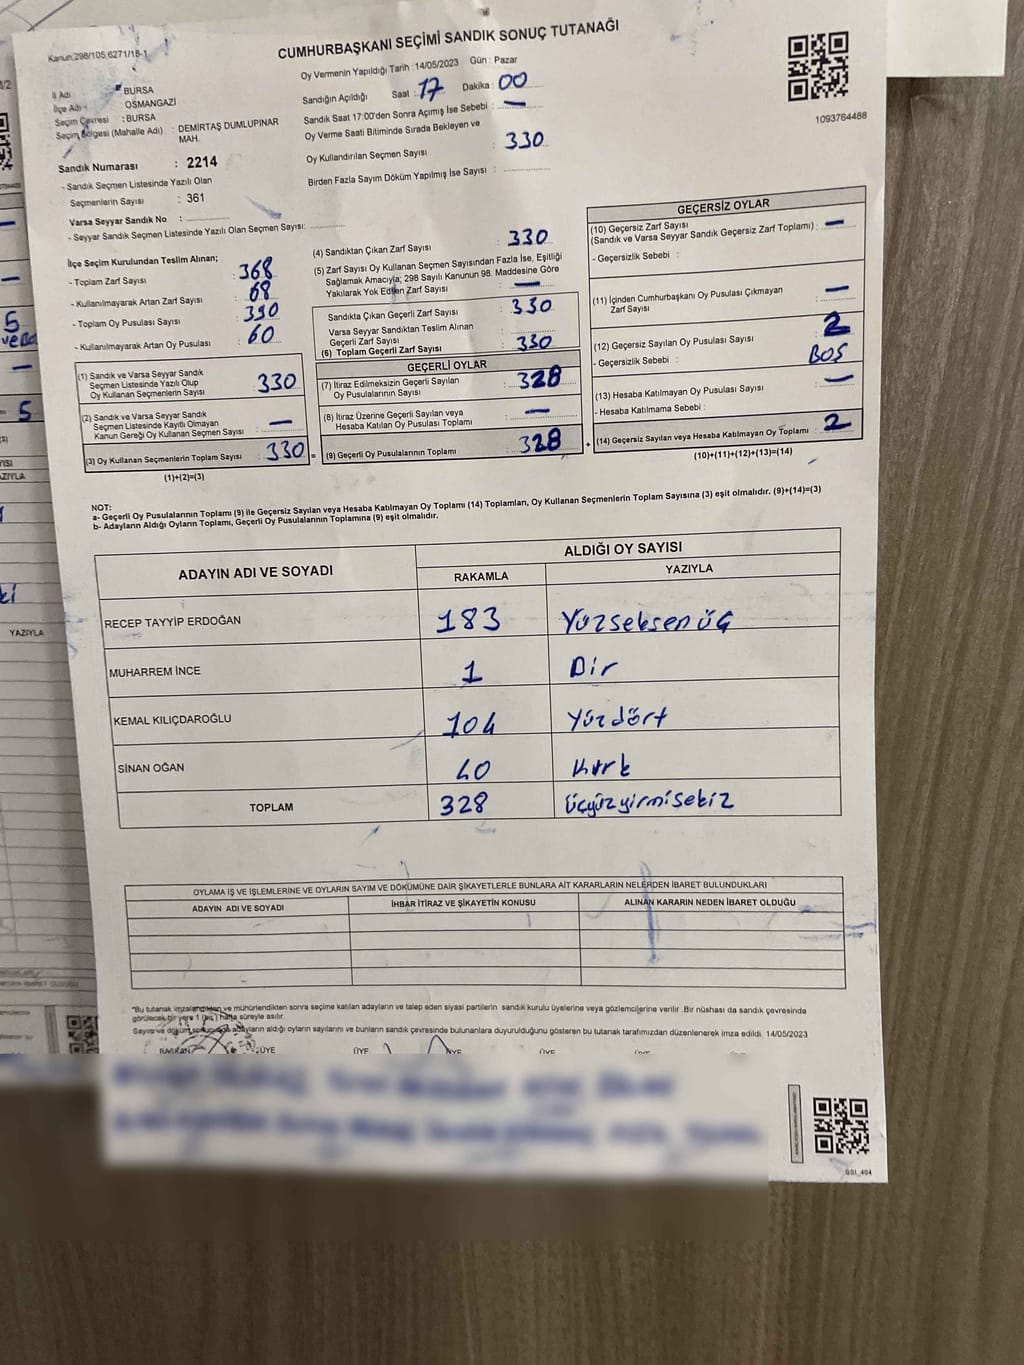 Kanun:298/105;6271/18-1
CUMHURBAŞKANI SEÇİMİ SANDIK SONUÇ TUTANAĞI
1093764488
İl Adı : BURSA
İlçe Adı : OSMANGAZİ
Seçim Çevresi : BURSA
Seçim Bölgesi (Mahalle Adı) : DEMİRTAŞ DUMLUPINAR MAH.
Sandık Numarası : 2214
- Sandık Seçmen Listesinde Yazılı Olan
Seçmenlerin Sayısı : 361
Varsa Seyyar Sandık No :
- Seyyar Sandık Seçmen Listesinde Yazılı Olan Seçmen Sayısı:
Oy Vermenin Yapıldığı Tarih : 14/05/2023 Gün : Pazar
Sandığın Açıldığı Saat : 17 Dakika : 00
Sandık Saat 17:00'den Sonra Açımış İse Sebebi : —
Oy Verme Saati Bitiminde Sırada Bekleyen ve
Oy Kullandırılan Seçmen Sayısı : 330
Birden Fazla Sayım Döküm Yapılmış İse Sayısı :
İlçe Seçim Kurulundan Teslim Alınan;
- Toplam Zarf Sayısı : 368
- Kullanılmayarak Artan Zarf Sayısı : 68
- Toplam Oy Pusulası Sayısı : 390
- Kullanılmayarak Artan Oy Pusulası : 60
(1) Sandık ve Varsa Seyyar Sandık
Seçmen Listesinde Yazılı Olup
Oy Kullanan Seçmenlerin Sayısı : 330
(2) Sandık ve Varsa Seyyar Sandık
Seçmen Listesinde Kayıtlı Olmayan
Kanun Gereği Oy Kullanan Seçmen Sayısı : —
(3) Oy Kullanan Seçmenlerin Toplam Sayısı : 330
(1)+(2)=(3)
(4) Sandıktan Çıkan Zarf Sayısı : 330
(5) Zarf Sayısı Oy Kullanan Seçmen Sayısından Fazla İse, Eşitliği
Sağlamak Amacıyla; 298 Sayılı Kanunun 98. Maddesine Göre
Yakılarak Yok Edilen Zarf Sayısı : —
Sandıkta Çıkan Geçerli Zarf Sayısı : 330
Varsa Seyyar Sandıktan Teslim Alınan
Geçerli Zarf Sayısı :
(6) Toplam Geçerli Zarf Sayısı : 330
GEÇERLİ OYLAR
(7) İtiraz Edilmeksizin Geçerli Sayılan
Oy Pusulalarının Sayısı : 328
(8) İtiraz Üzerine Geçerli Sayılan veya
Hesaba Katılan Oy Pusulası Toplamı : —
= (9) Geçerli Oy Pusulalarının Toplamı : 328
GEÇERSİZ OYLAR
(10) Geçersiz Zarf Sayısı
(Sandık ve Varsa Seyyar Sandık Geçersiz Zarf Toplamı) : —
- Geçersizlik Sebebi :
(11) İçinden Cumhurbaşkanı Oy Pusulası Çıkmayan
Zarf Sayısı : —
(12) Geçersiz Sayılan Oy Pusulası Sayısı : 2
- Geçersizlik Sebebi : BOŞ
(13) Hesaba Katılmayan Oy Pusulası Sayısı : —
- Hesaba Katılmama Sebebi :
+ (14) Geçersiz Sayılan veya Hesaba Katılmayan Oy Toplamı : 2
(10)+(11)+(12)+(13)=(14)
NOT:
a- Geçerli Oy Pusulalarının Toplamı (9) ile Geçersiz Sayılan veya Hesaba Katılmayan Oy Toplamı (14) Toplamları, Oy Kullanan Seçmenlerin Toplam Sayısına (3) eşit olmalıdır. (9)+(14)=(3)
b- Adayların Aldığı Oyların Toplamı, Geçerli Oy Pusulalarının Toplamına (9) eşit olmalıdır.
ADAYIN ADI VE SOYADI ALDIĞI OY SAYISI
RAKAMLA YAZIYLA
RECEP TAYYİP ERDOĞAN 183 Yüzseksenüç
MUHARREM İNCE 1 Bir
KEMAL KILIÇDAROĞLU 104 Yüzdört
SİNAN OĞAN 40 Kırk
TOPLAM 328 Üçyüzyirmisekiz
OYLAMA İŞ VE İŞLEMLERİNE VE OYLARIN SAYIM VE DÖKÜMÜNE DAİR ŞİKAYETLERLE BUNLARA AİT KARARLARIN NELERDEN İBARET BULUNDUKLARI
ADAYIN ADI VE SOYADI İHBAR İTİRAZ VE ŞİKAYETİN KONUSU ALINAN KARARIN NEDEN İBARET OLDUĞU
*Bu tutanak imzalandıktan ve mühürlendikten sonra seçime katılan adayların ve talep eden siyasi partilerin sandık kurulu üyelerine veya gözlemcilerine verilir. Bir nüshası da sandık çevresinde
görülecek bir yere 1 (bir) hafta süreyle asılır.
Sayım ve döküm sonucunda adayların aldığı oyların sayılarını ve bunların sandık çevresinde bulunanlara duyurulduğunu gösteren bu tutanak tarafımızdan düzenlenerek imza edildi. 14/05/2023
BAŞKAN ÜYE ÜYE ÜYE ÜYE ÜYE ÜYE
YAZIYLA